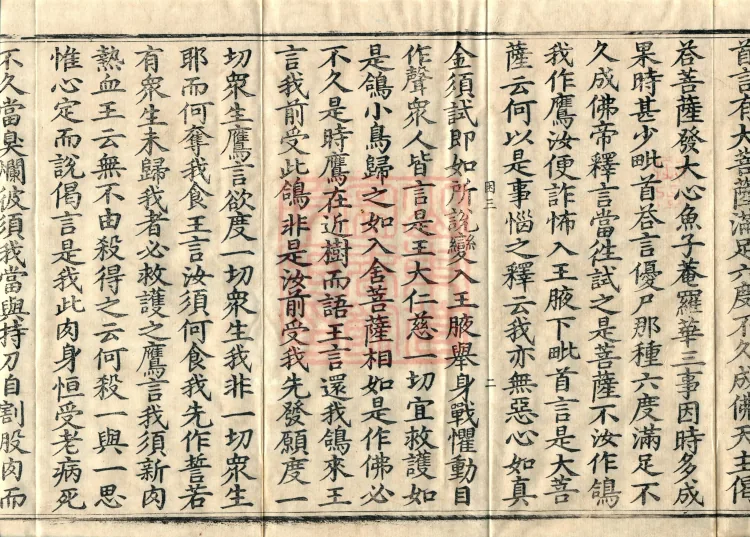 首言有大菩薩滿足六度不久成佛天主偈
荅菩薩發大心魚子菴羅華三事因時多成
果時甚少毗首荅言優尸那種六度滿足不
久成佛帝釋言當往試之是菩薩不汝作鴿
我作鷹汝便詐怖入王腋下毗首言是大菩
薩云何以是事惱之釋云我亦無惡心如真
困三 二
金須試即如所說變入王腋舉身戰懼動目
作聲衆人皆言是王大仁慈一切宜救護如
是鴿小鳥歸之如入舍菩薩相如是作佛必
不久是時鷹在近樹而語王言還我鴿來王
言我前受此鴿非是汝前受我先發願度一
切衆生鷹言欲度一切衆生我非一切衆生
耶而何奪我食王言汝須何食我先作誓若
有衆生未歸我者必救護之鷹言我須新肉
熱血王云無不由殺得之云何殺一與一思
惟心定而說偈言是我此肉身恒受老病死
不久當臭爛彼須我當與持刀自割股肉而